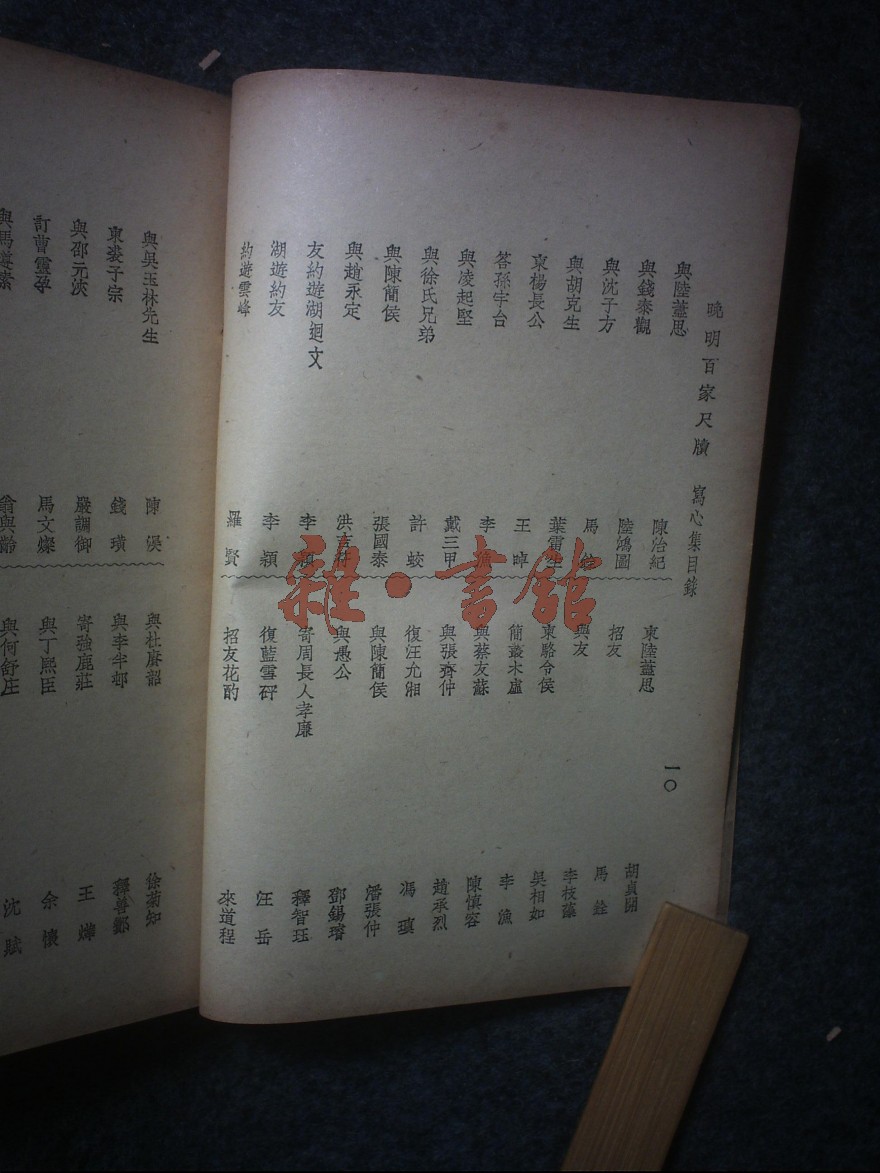 晚明百家尺牘 寫心集目錄
一〇
與陸藎思 陳治紀
與錢泰觀 陸鴻圖
與沈子方 馬
與胡克生 葉雷生
柬楊長公 王晫
答孫宇台 李漁
與凌起堅 戴三甲
與徐氏兄弟 許蛟
與陳簡侯 張國泰
與趙永定 洪吉符
友約遊湖迴文 李穎
湖遊約友 李穎
約遊雲峰 羅賢
柬陸藎思 胡貞開
招友 馬銓
與友 李枝藻
柬駱令侯 吳相如
簡叢木虛 李漁
與蔡友蘇 陳慎容
與張齊仲 趙承烈
復汪允湘 馮瑱
與陳簡侯 潘張仲
與愚公 鄧錫璿
寄周長人孝廉 釋智珏
復藍雪砰 汪岳
招友花酌 來道程
與吳玉林先生 陳淏
柬裘子宗 錢璜
與邵元浹 嚴調御
訂曹靈孕 馬文燦
與馬 翁與齡
與杜麐韶 徐菊知
與李半邨 釋
寄強鹿莊 王㷆
與丁熙臣 余懷
與何舒庄 沈賦
雜·書館